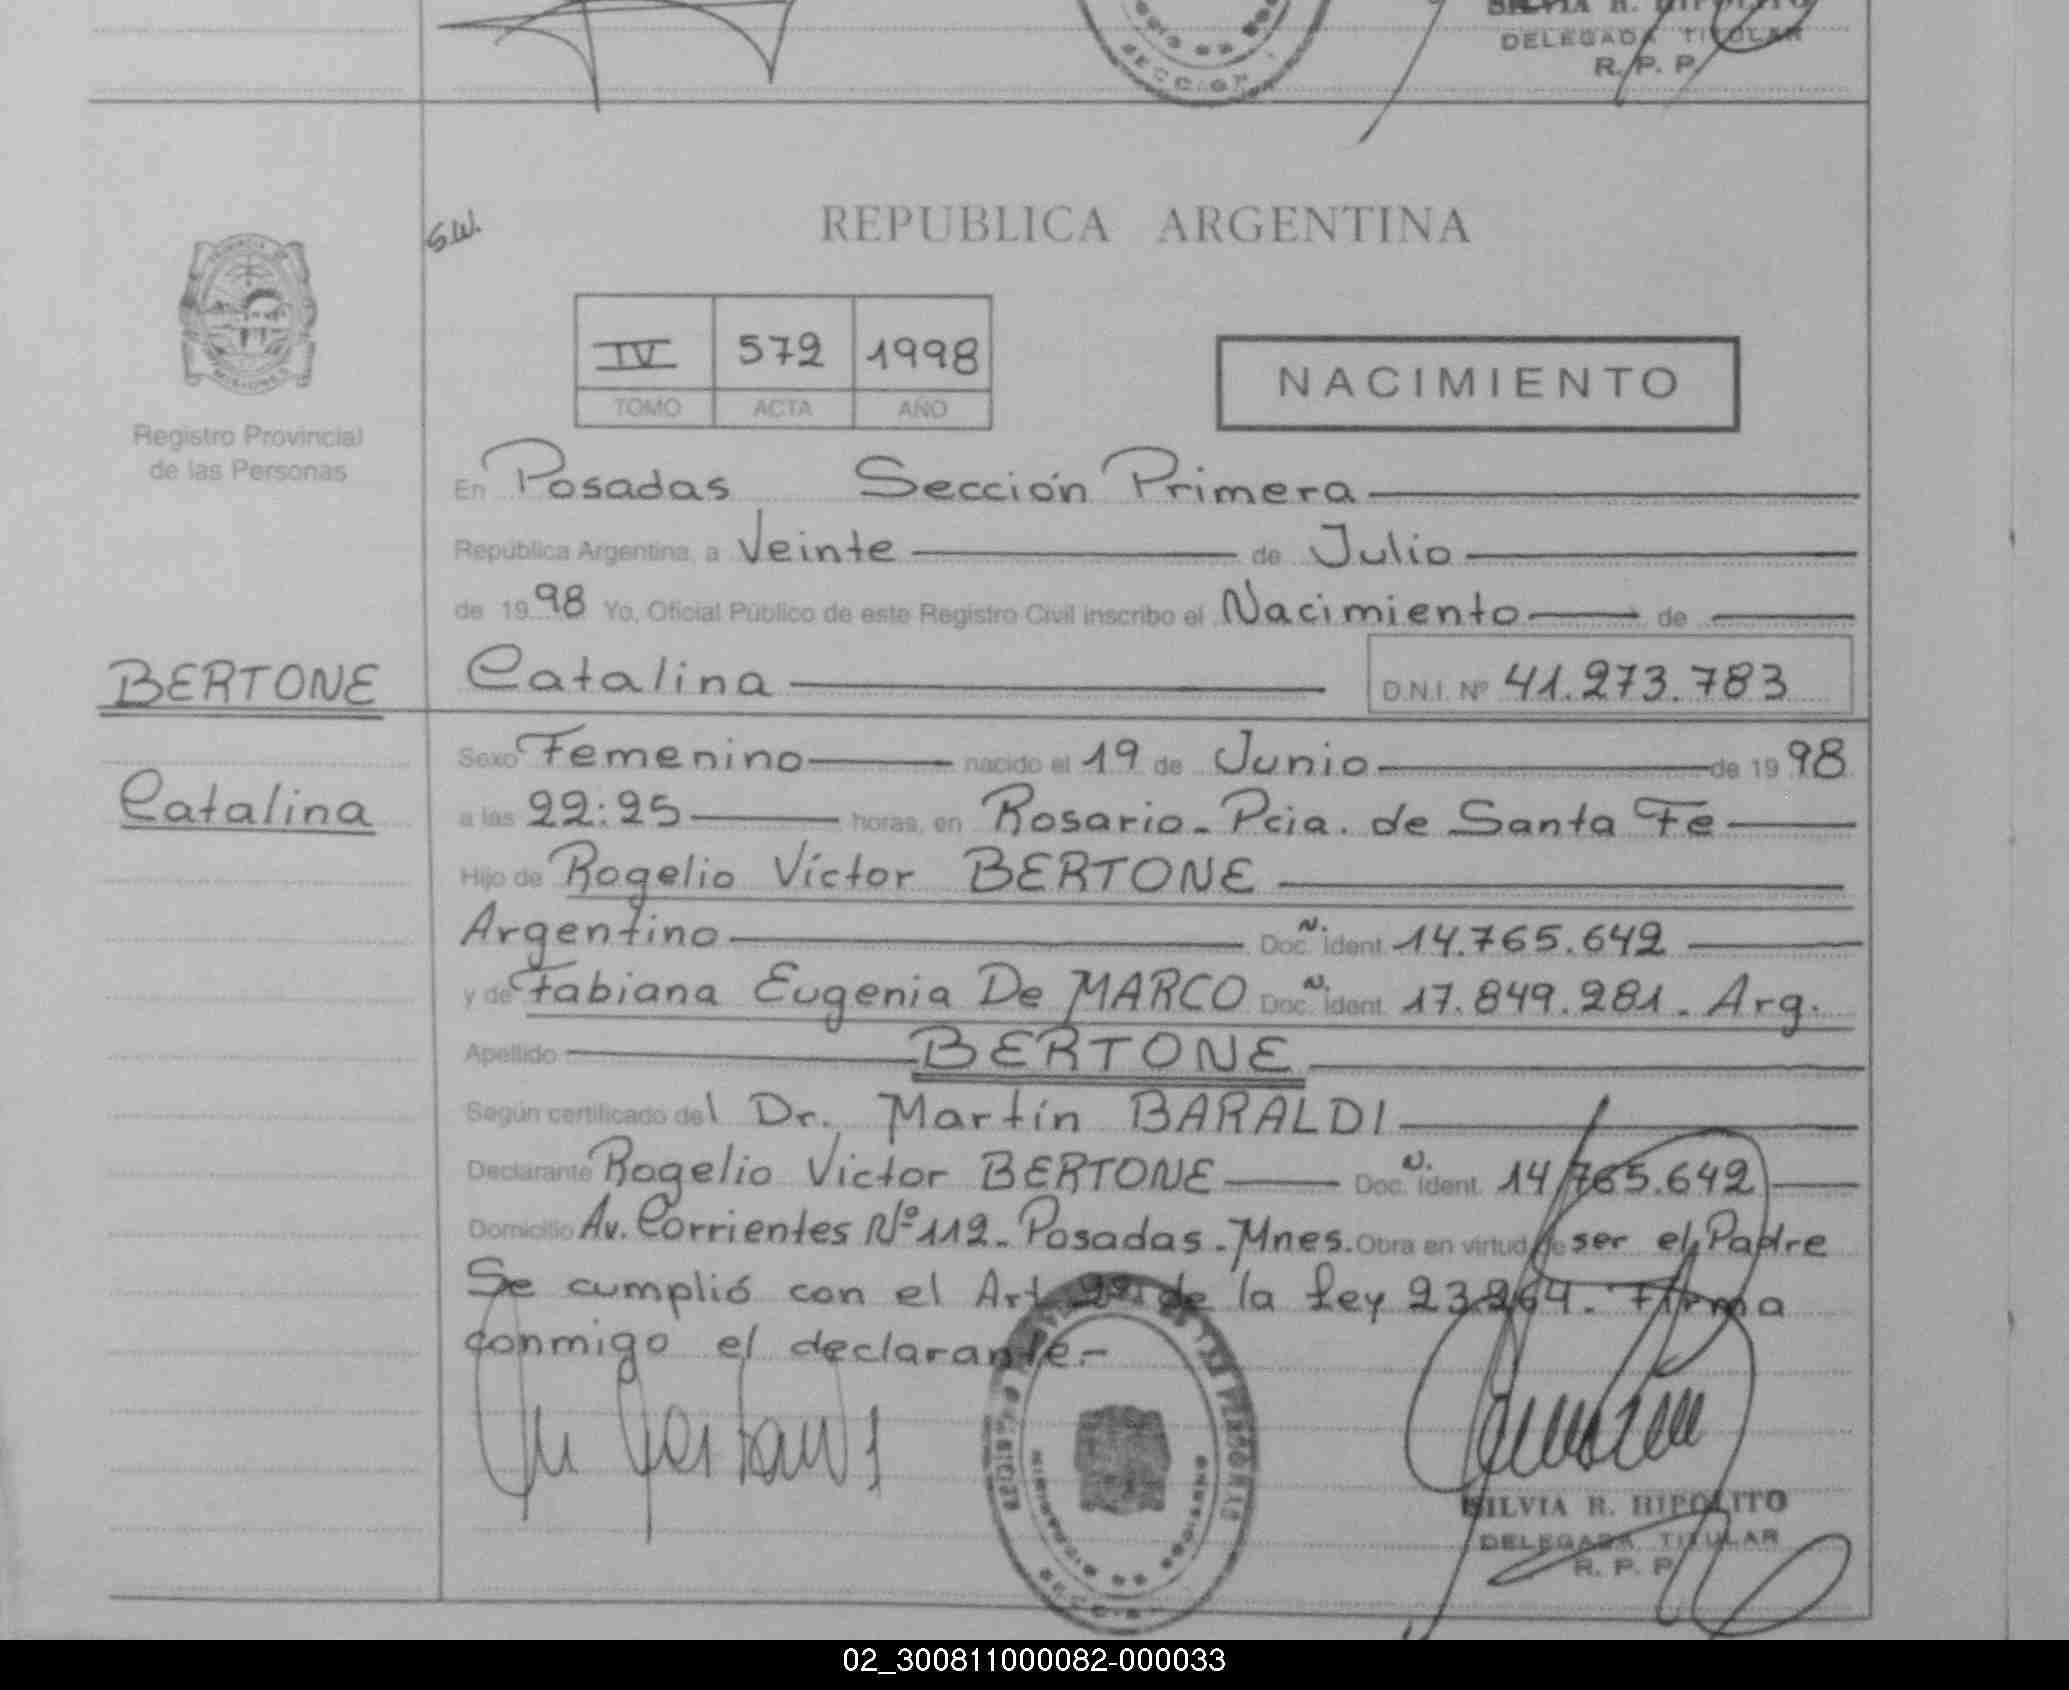 SILVIA R. HIPOLITO
DELEGADA TITULAR
R. P. P.
SECCION
S.W.
REPUBLICA ARGENTINA
IV 572 1998
TOMO ACTA AÑO
NACIMIENTO
Registro Provincial
de las Personas
MISIONES
En Posadas Sección Primera
República Argentina, a Veinte de Julio
de 1998 Yo, Oficial Público de este Registro Civil inscribo el Nacimiento de
BERTONE
Catalina D.N.I. Nº 41.273.783
Sexo Femenino nacido el 19 de Junio de 1998
Catalina
a las 22:25 horas, en Rosario - Pcia. de Santa Fe
Hijo de Rogelio Víctor BERTONE
Argentino Doc. N. Ident. 14.765.642
y de Fabiana Eugenia De MARCO Doc. N. Ident. 17.849.281. Arg.
Apellido BERTONE
Según certificado del Dr. Martín BARALDI
Declarante Rogelio Victor BERTONE Doc. N. Ident. 14.765.642
Domicilio Av. Corrientes Nº 112 - Posadas - Mnes. Obra en virtud de ser el Padre
Se cumplió con el Art. de la Ley 23264. Firma
conmigo el declarante.-
SILVIA R. HIPOLITO
DELEGADA TITULAR
R. P. P.
02_300811000082-000033